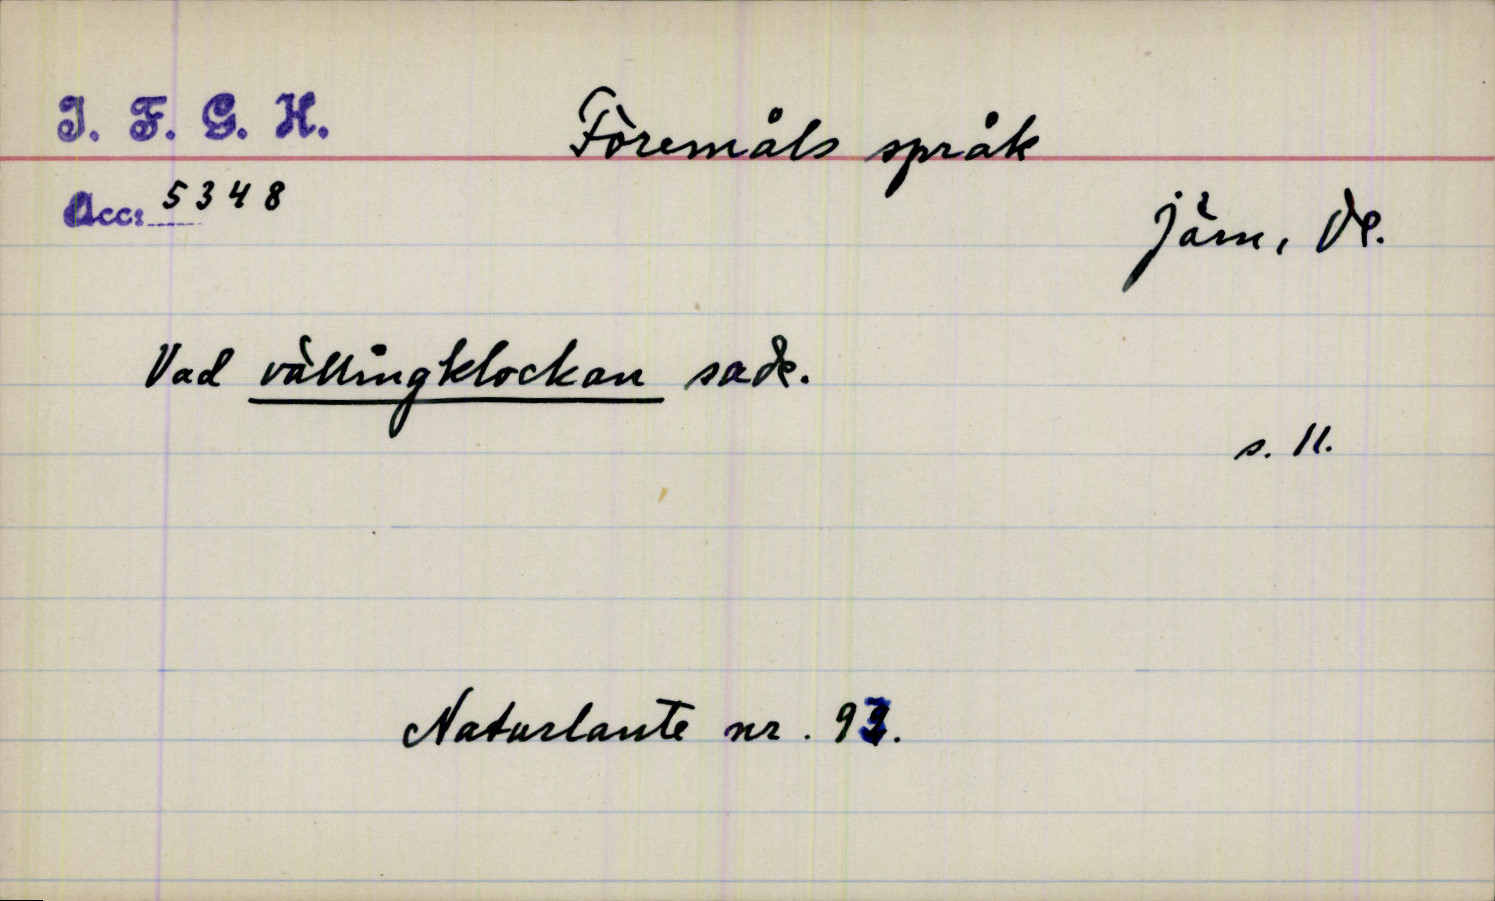 I. F. G. H.
Föremåls språk
Acc: 5348
Järn, Vl.
Vad vällingklockan sade.
s. 11.
Naturlante nr. 93.